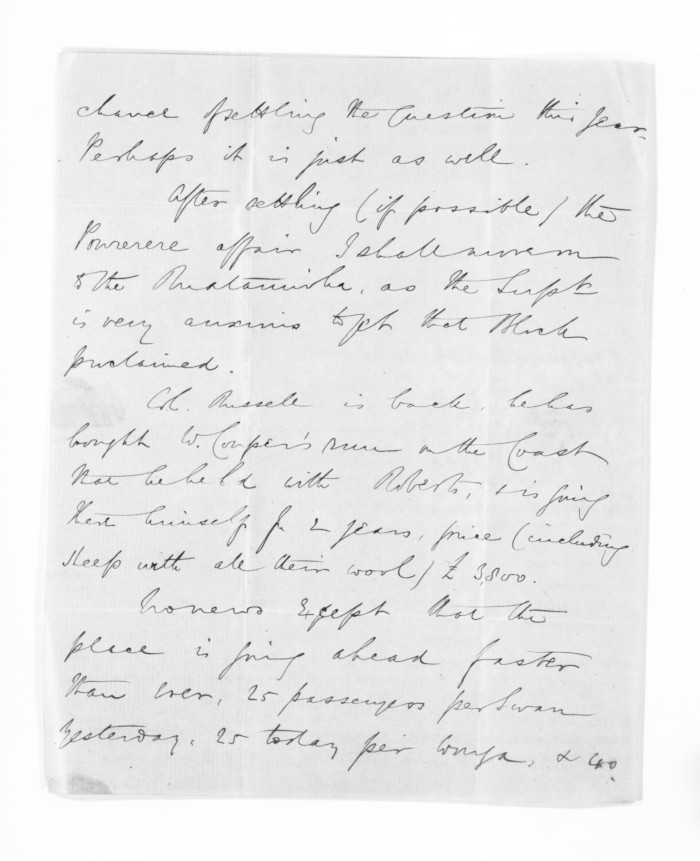 chance of settling the Question this year.
Perhaps it is just as well.
After settling (if possible) the
Powerere affair I shall move on
to the Ruataniwha, as the Supt.
is very anxious to get that Block
proclaimed.
Col. Russell is back, he has
bought W. Couper's run on the Coast
that he held with Roberts, & is going
there himself for 2 years, price (including
sheep with all their wool) £ 3,800.
No news except that the
place is going ahead faster
than ever, 25 passengers per Swan
yesterday, 25 today per Wonga, & 40